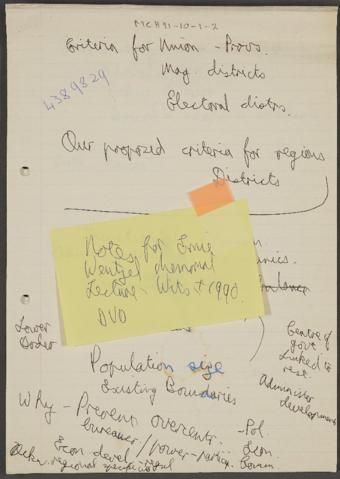 MCH91-10-1-2
Criteria for Union - Provs.
Mag. districts
4389829
Electoral distrs.
Our proposed criteria for regions
Districts
Notes for Ernie
Wentzel memorial
Lecture - Wits + 1990.
DVD
Lower
Order
Centre of
govt
linked to
rest.
Population size
Existing Boundaries
Administer
development
Why - Prevent overcent.
- Pol.
Econ.
Econ devel-
regional